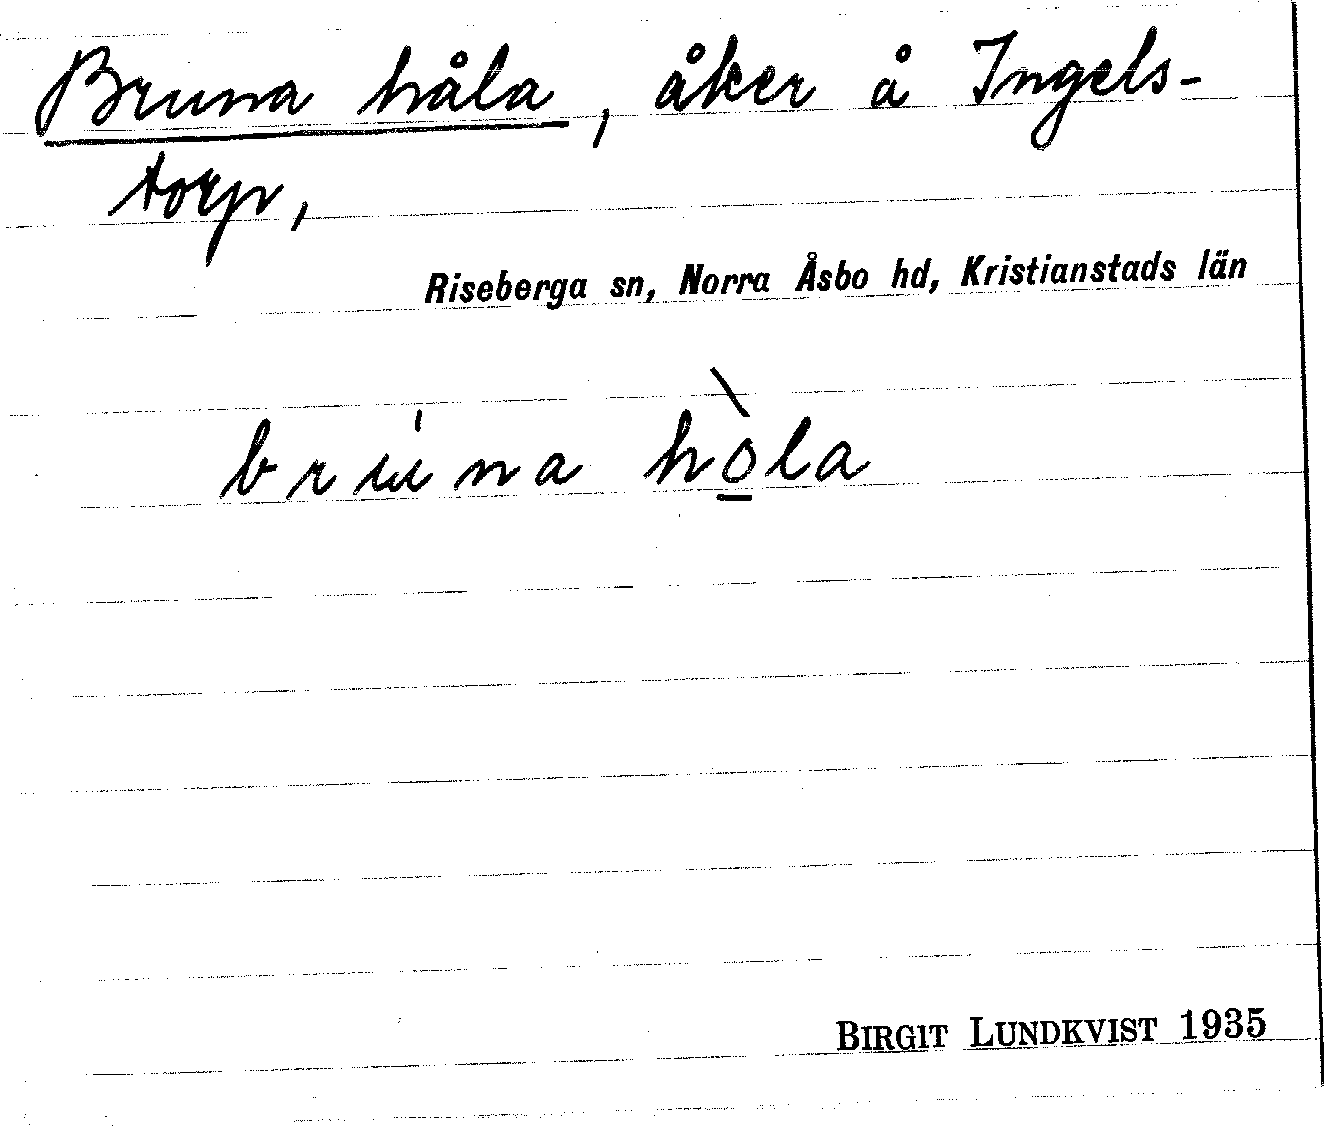 Bruna håla, åker å Ingels-
torp,
Riseberga sn, Norra Åsbo hd, Kristianstads län
brúna hò̱la
BIRGIT LUNDKVIST 1935